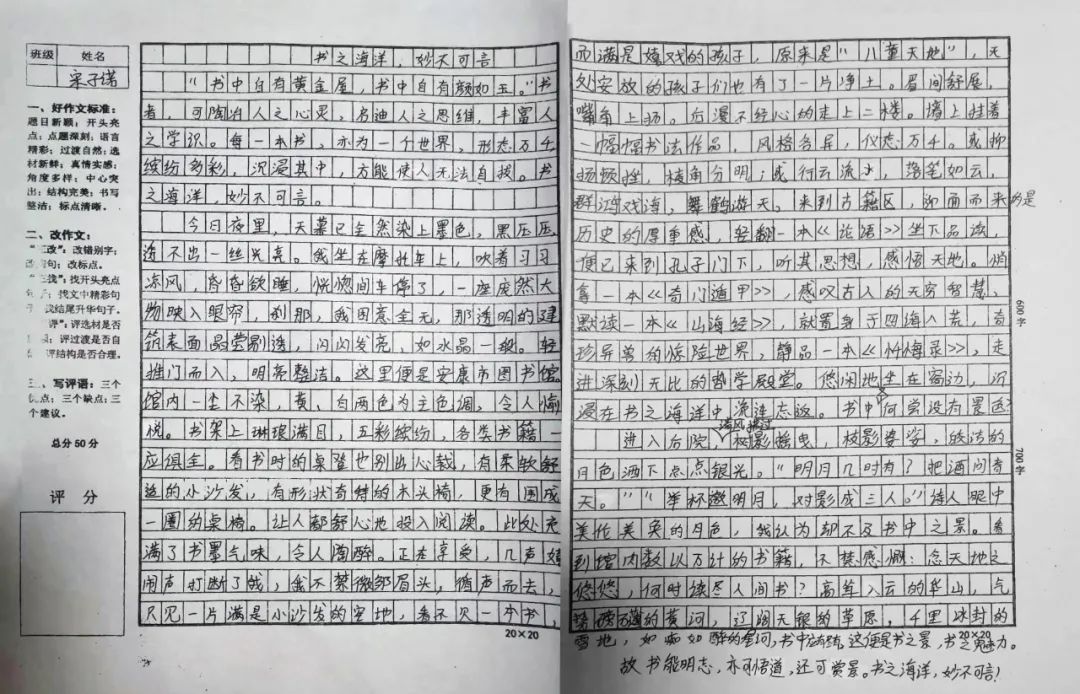 班级
姓名
宋子诺
一、好作文标准：
题目新颖；开头亮
点；点题深刻；语言
精彩；过渡自然；选
材新鲜；真情实感；
角度多样；中心突
出；结构完美；书写
整洁；标点清晰。
二、改作文：
改”：改错别字；
句；改标点。
找”：找开头亮点
找文中精彩句
找结尾升华句子。
评”：评选材是否
评过渡是否自
评结构是否合理。
三、写评语：三个
点；三个缺点；三
个建议。
总分50分
评 分
书之海洋，妙不可言
“书中自有黄金屋，书中自有颜如玉。”书
者，可陶冶人之心灵，启迪人之思维，丰富人
之学识。每一本书，亦为一个世界，形态万千，
缤纷多彩，沉浸其中，方能使人无法自拔。书
之海洋，妙不可言。
今日夜里，天幕已全然染上墨色，黑压压，
透不出一丝光亮。我坐在摩托车上，吹着习习
凉风，昏昏欲睡，恍惚间车停了，一座庞然大
物映入眼帘，刹那，我困意全无，那透明的建
筑表面晶莹剔透，闪闪发亮，如水晶一般。轻
推门而入，明亮整洁。这里便是安康市图书馆。
馆内一尘不染，黄、白两色为主色调，令人愉
悦。书架上琳琅满目，五彩缤纷，各类书籍一
应俱全。看书时的桌登也别出心裁，有柔软舒
适的小沙发，有形状奇特的木头椅，更有围成
一圈的桌椅。让人都舒心地投入阅读。此处充
满了书墨气味，令人陶醉。正在享受，几声嬉
闹声打断了我，我不禁微皱眉头，循声而去，
只见一片满是小沙发的空地，看不见一本书，
20×20
而满是嬉戏的孩子，原来是“儿童天地”，无
处安放的孩子们也有了一片净土。眉间舒展，
嘴角上扬。后漫不经心的走上二楼。墙上挂着
一幅幅书法作品，风格各异，仪态万千。或抑
扬顿挫，棱角分明；或行云流水，落笔如云，
群鸿戏海，舞鹤游天。来到古籍区，迎面而来的是
历史的厚重感，轻翻一本《论语》坐下品读，
便已来到孔子门下，听其思想，感悟天地。悄
拿一本《奇门遁甲》，感叹古人的无穷智慧、
默读一本《山海经》，就置身于四海八荒，奇
珍异兽的惊险世界，静品一本《忏悔录》，走
进深刻无比的哲学殿堂。悠闲地坐在窗边，沉
浸在书之海洋中流连忘返。书中何尝没有景色？
进入后院，清风拂过，树影摇曳，枝影婆娑，皎洁的
月色洒下点点银光。“明月几时有？把酒问青
天。”“举杯邀明月，对影成三人。”诗人眼中
美伦美奂的月色，我认为却不及书中之景。看
到馆内数以万计的书籍，不禁感慨：念天地之
悠悠，何时读尽人间书？高耸入云的华山，气
势磅礴的黄河，辽阔无银的草原，千里冰封的
雪地，如痴如醉的星河，书中这便是书之景，书之魅力。
故书能明志，亦可悟道，还可赏景。书之海洋，妙不可言！
600字
700字
20×20